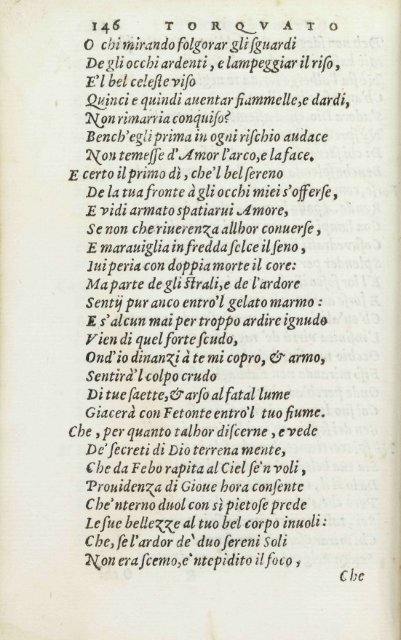 146 TORQVATO
O chi mirando folgorar gli ſguardi
De gli occhi ardenti, e lampeggiar il riſo,
E'l bel celeſte viſo
Quinci e quindi auentar fiammelle, e dardi,
Non rimarria conquiſo?
Bench'egli prima in ogni riſchio audace
Non temeſſe d'Amor l'arco, e la face.
E certo il primo dì, che'l bel ſereno
De la tua fronte à gli occhi miei s'offerſe,
E vidi armato spatiarui Amore,
Se non che riuerenza allhor conuerſe,
E marauiglia in fredda ſelce il ſeno,
Iui peria con doppia morte il core:
Ma parte de gli ſtrali, e de l'ardore
Sentij pur anco entro'l gelato marmo:
E s'alcun mai per troppo ardire ignudo
Vien di quel forte ſcudo,
Ond'io dinanzi à te mi copro, & armo,
Sentirà'l colpo crudo
Di tue ſaette, & arſo al fatal lume
Giacerà con Fetonte entro'l tuo fiume.
Che, per quanto talhor diſcerne, e vede
De' ſecreti di Dio terrena mente,
Che da Febo rapita al Ciel ſe'n voli,
Prouidenza di Gioue hora conſente
Che'nterno duol con sì pietoſe prede
Le ſue bellezze al tuo bel corpo inuoli:
Che, ſe l'ardor de' duo ſereni Soli
Non era ſcemo, e'ntepidito il foco,
Che